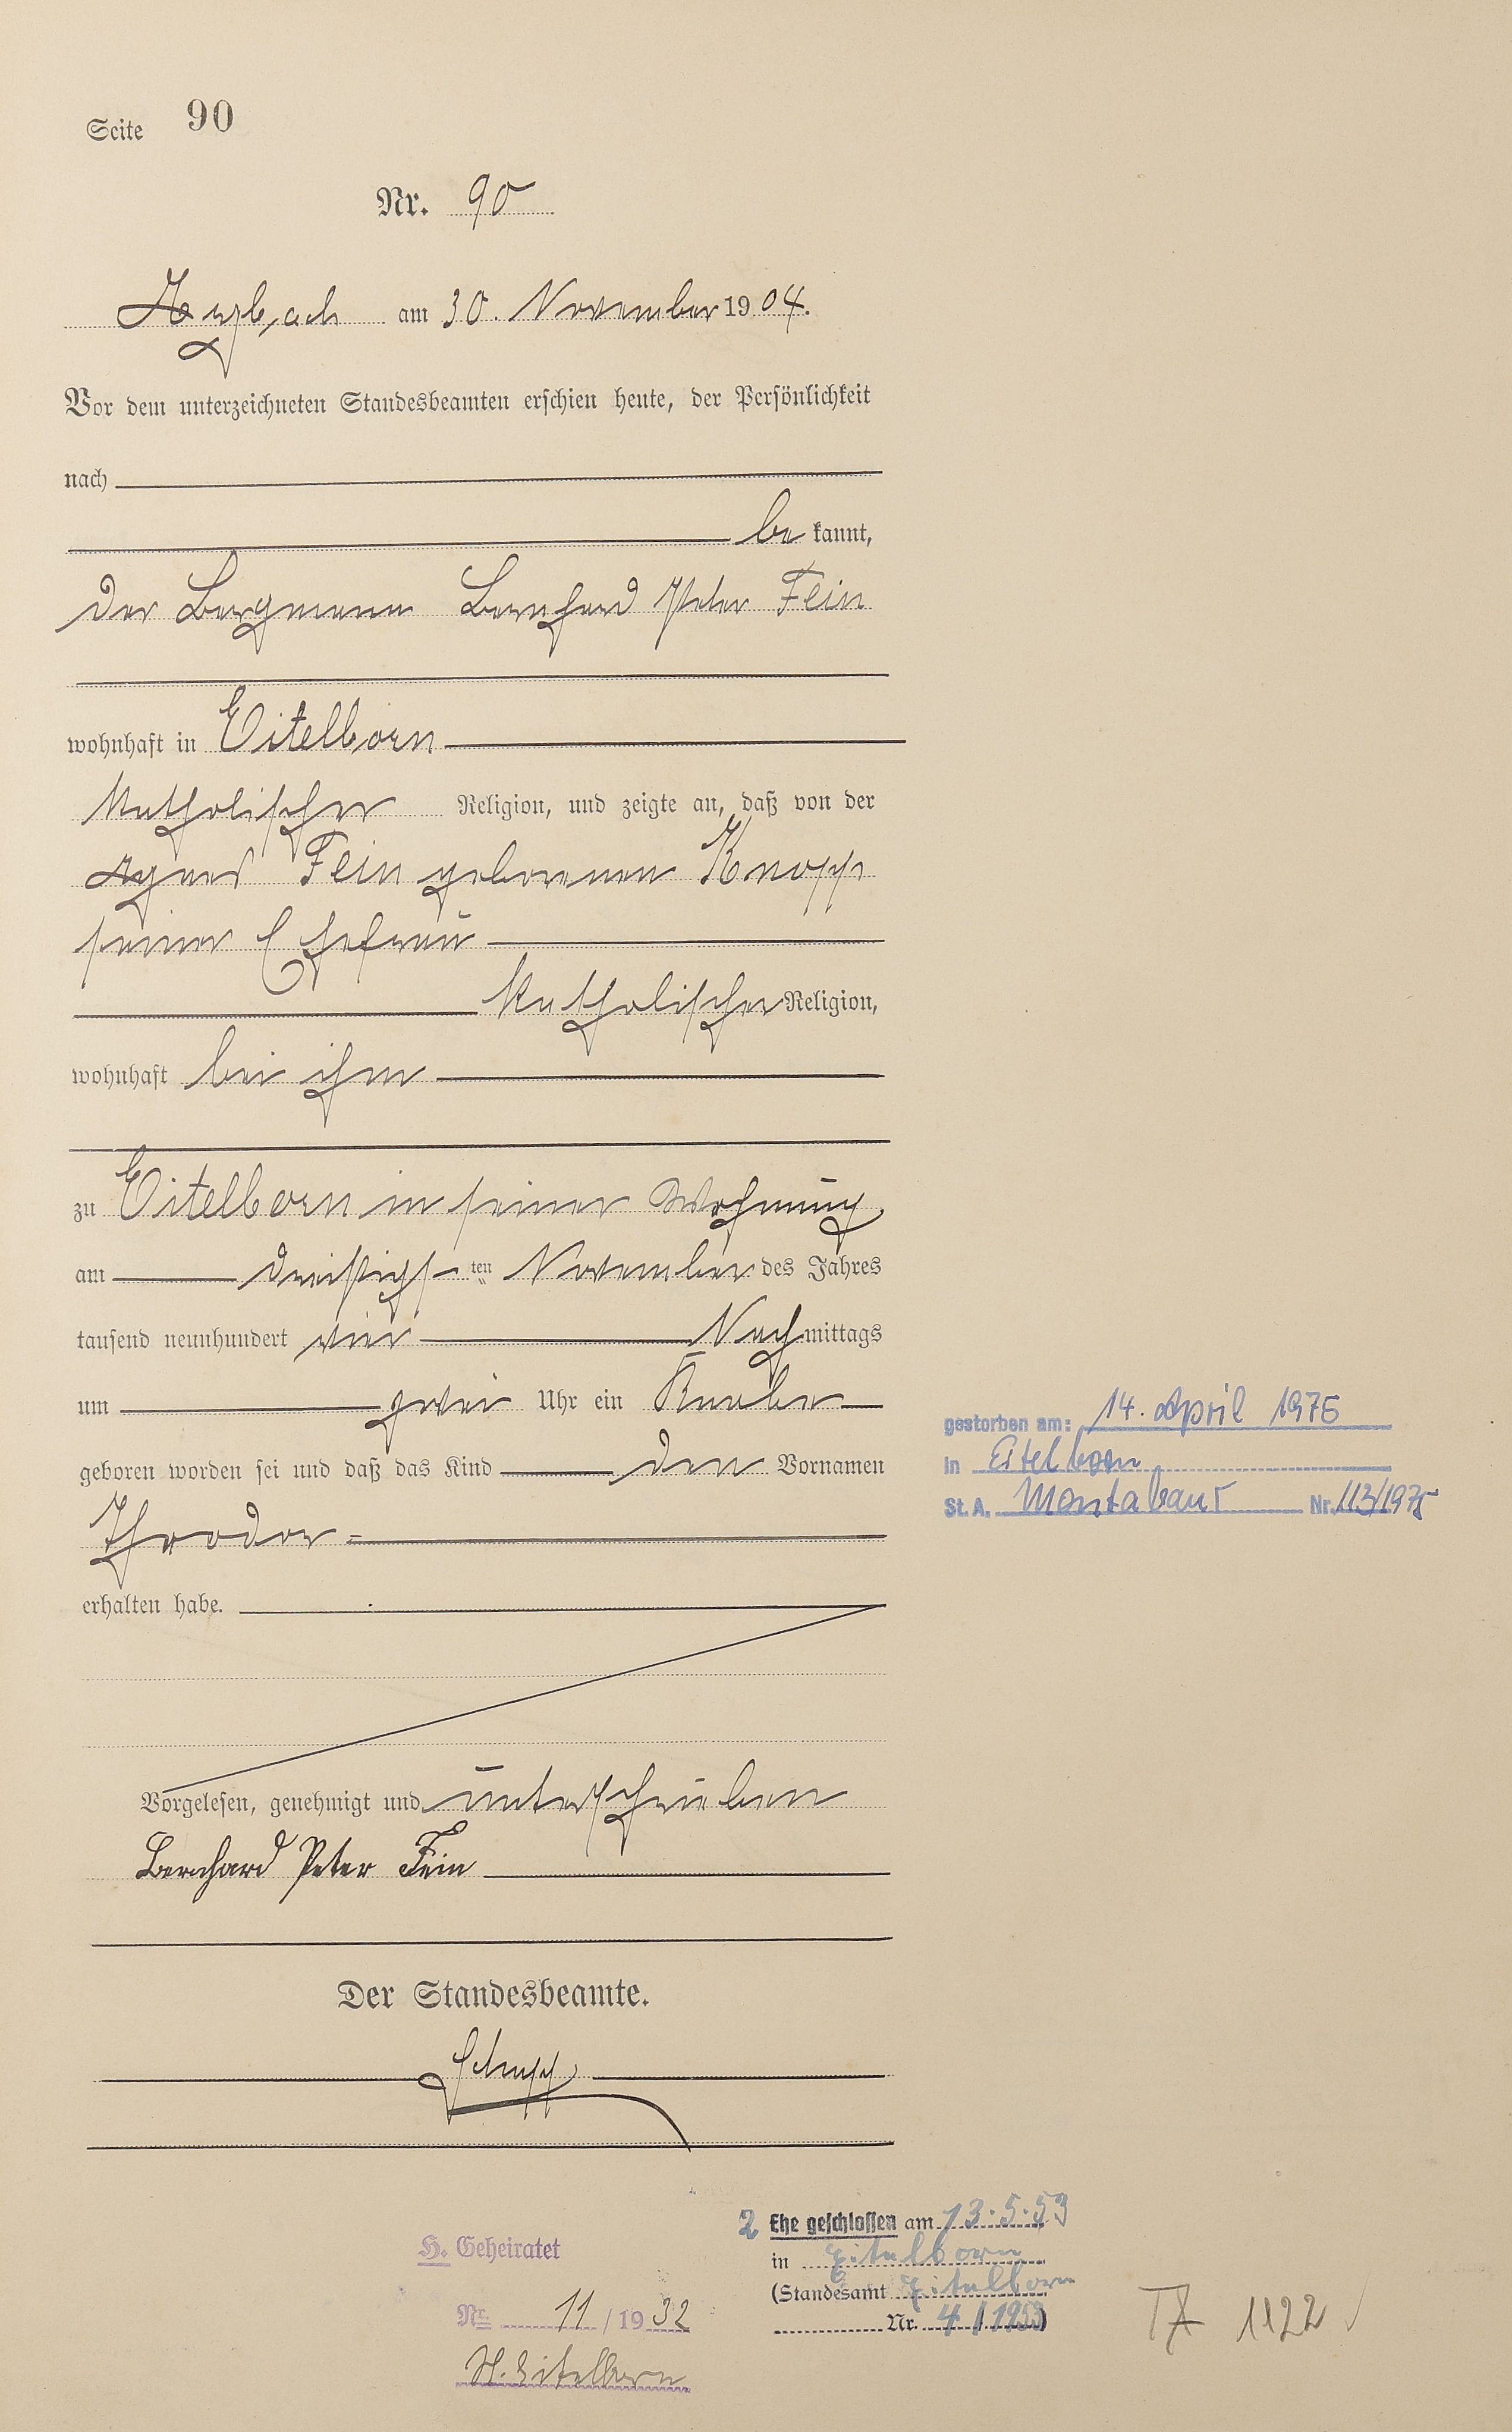 Seite 90
Nr. 90
Arzbach am 30. November 1904.
Vor dem unterzeichneten Standesbeamten erschien heute, der Persönlichkeit
nach
be kannt,
der Bergmann Bernhard Peter Fein
wohnhaft in Eitelborn
katholischer Religion, und zeigte an, daß von der
Agnes Fein geborenen Knopp
seiner Ehefrau
katholischer Religion,
wohnhaft bei ihm
zu Eitelborn in seiner Wohnung
am dreißigsten November des Jahres
tausend neunhundert vier Nachmittags
um zwei Uhr ein Knabe
geboren worden sei und daß das Kind den Vornamen
Theodor
erhalten habe.
Vorgelesen, genehmigt und unterschrieben
Bernhard Peter Fein
Der Standesbeamte.
Schupp
gestorben am: 14. April 1975
in Eitelborn
St. A. Montabaur Nr. 113/1975
H. Geheiratet
Nr. 11/1932
St. Eitelborn
2 Ehe geschlossen am 13.5.53
in Eitelborn
(Standesamt Eitelborn
Nr. 4/1953)
1122